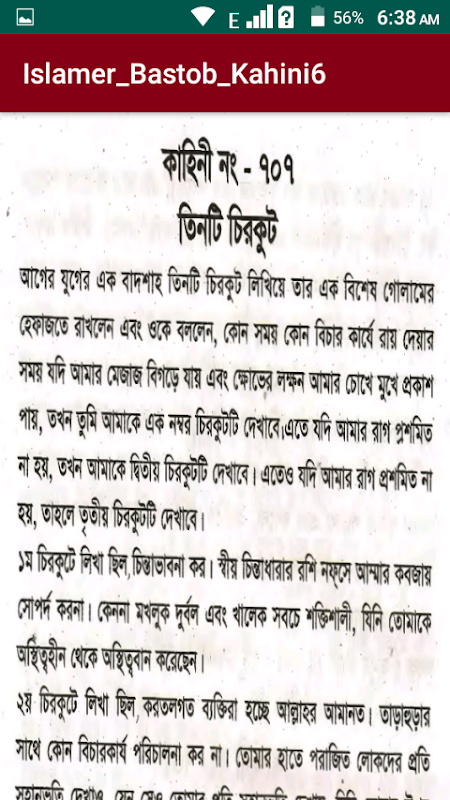 E
56%
6:38 AM
Islamer_Bastob_Kahini6
কাহিনী নং - ৭০৭
তিনটি চিরকুট
আগের যুগের এক বাদশাহ তিনটি চিরকুট লিখিয়ে তার এক বিশেষ গোলামের
হেফাজতে রাখলেন এবং ওকে বললেন, কোন সময় কোন বিচার কার্যে রায় দেয়ার
সময় যদি আমার মেজাজ বিগড়ে যায় এবং ক্ষোভের লক্ষন আমার চোখে মুখে প্রকাশ
পায়, তখন তুমি আমাকে এক নম্বর চিরকুটটি দেখাবে।এতে যদি আমার রাগ প্রশমিত
না হয়, তখন আমাকে দ্বিতীয় চিরকুটটি দেখাবে। এতেও যদি আমার রাগ প্রশমিত না
হয়, তাহলে তৃতীয় চিরকুটটি দেখাবে।
১ম চিরকুটে লিখা ছিল,চিন্তাভাবনা কর। স্বীয় চিন্তাধারার রশি নফ্সে আম্মার কবজায়
সোপর্দ করনা। কেননা মখলুক দুর্বল এবং খালেক সবচে শক্তিশালী, যিনি তোমাকে
অস্থিত্বহীন থেকে অস্থিত্ববান করেছেন।
২য় চিরকুটে লিখা ছিল, করতলগত ব্যক্তিরা হচ্ছে আল্লাহর আমানত। তাড়াহুড়ার
সাথে কোন বিচারকার্য পরিচালনা কর না। তোমার হাতে পরাজিত লোকদের প্রতি